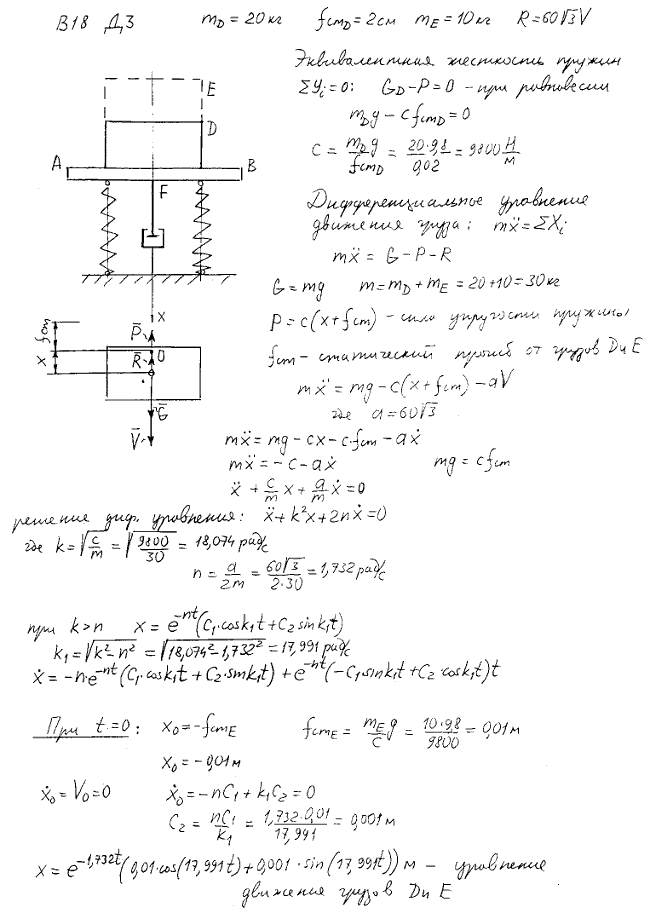 В18 Д3 m_D = 20 кг f_cmD = 2 см m_E = 10 кг R = 60√3 V
Эквивалентная жесткость пружин
ΣY_i = 0: G_D - P = 0 - при равновесии
m_D g - c f_cmD = 0
C = m_D g / f_cmD = 20·9,8 / 0,02 = 9800 Н/м
E
D
A B
F
Дифференциальное уравнение
движения груза: mẍ = ΣX_i
mẍ = G - P - R
G = mg m = m_D + m_E = 20 + 10 = 30 кг
P = c(x + f_cm) - сила упругости пружины
f_cm - статический прогиб от грузов D и E
mẍ = mg - c(x + f_cm) - aV
где a = 60√3
x
f_cm
P̄
O
x
R̄
Ḡ
V̄
mẍ = mg - cx - c·f_cm - aẋ
mẍ = -c - aẋ mg = c f_cm
ẍ + c/m x + a/m ẋ = 0
решение диф. уравнения: ẍ + k²x + 2nẋ = 0
где k = √(c/m) = √(9800/30) = 18,074 рад/с
n = a/2m = 60√3 / 2·30 = 1,732 рад/с
при k > n x = e^-nt (C₁·cosk₁t + C₂ sink₁t)
k₁ = √(k² - n²) = √(18,074² - 1,732²) = 17,991 рад/с
ẋ = -n·e^-nt (C₁·cosk₁t + C₂·sink₁t) + e^-nt (-C₁sink₁t + C₂·cosk₁t)t
При t = 0: x₀ = -f_cmE f_cmE = m_E g / c = 10·9,8 / 9800 = 0,01 м
x₀ = -0,01 м
ẋ₀ = V₀ = 0 ẋ₀ = -nC₁ + k₁C₂ = 0
C₂ = nC₁ / k₁ = 1,732·0,01 / 17,991 = 0,001 м
x = e^-1,732t (0,01·cos(17,991t) + 0,001·sin(17,991t)) м - уравнение
движения грузов D и E